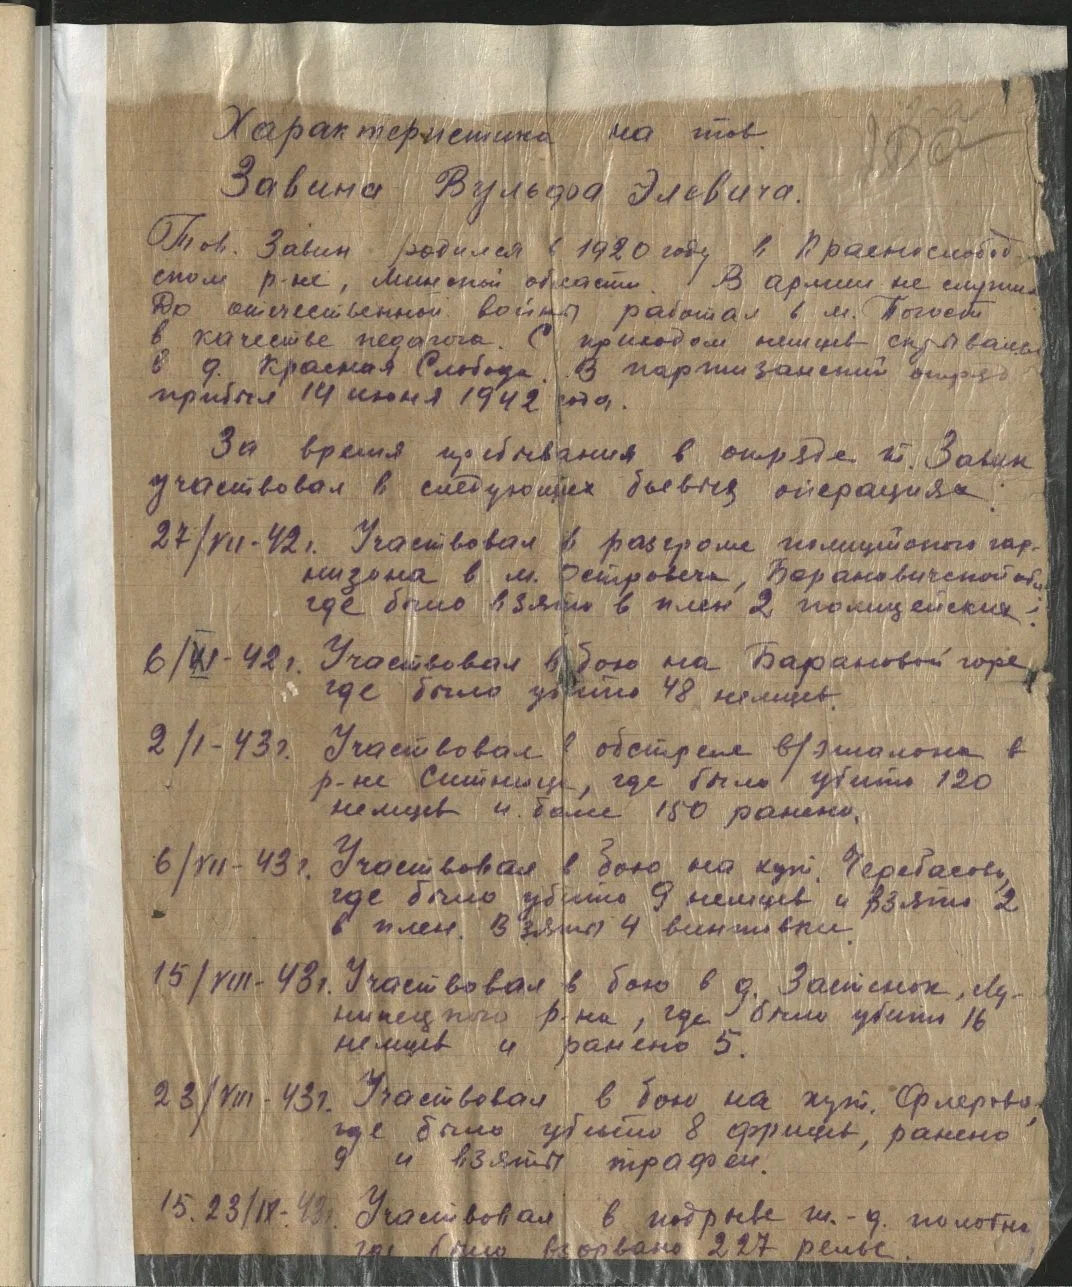 Характеристика на тов.
Завина Вульфа Элевича.
Тов. Завин родился в 1920 году в Краснослобод-
ском р-не, Минской области. В армии не служил
До отечественной войны работал в м. Погост
в качестве педагога. С приходом немцев скрывался
в д. Красная Слобода. В партизанский отряд
прибыл 14 июня 1942 года.
За время пребывания в отряде т. Завин
участвовал в следующих боевых операциях:
27/VII-42г. Участвовал в разгроме полицейского гар-
низона в м. Островеча, Барановичской обл.
где было взято в плен 2 полицейских.
6/XI-42г. Участвовал в бою на Барановой горе,
где было убито 48 немцев.
2/I-43г. Участвовал в обстреле в/эшалона в
р-не Ситница, где было убито 120
немцев и боле 150 ранено.
6/VII-43г. Участвовал в бою на хут. Черебасово,
где было убито 9 немцев и взято 2
в плен. Взяты 4 винтовки.
15/VIII-43г. Участвовал в бою в д. Застенок, Лу-
нинецкого р-на, где было убито 16
немцев и ранено 5.
23/VIII-43г. Участвовал в бою на хут. Флерово,
где было убито 8 фрицев, ранено
9 и взяты трафеи.
15.23/IX-43г. Участвовал в подрыве ж.-д. полотна
где было взорвано 227 рельс.